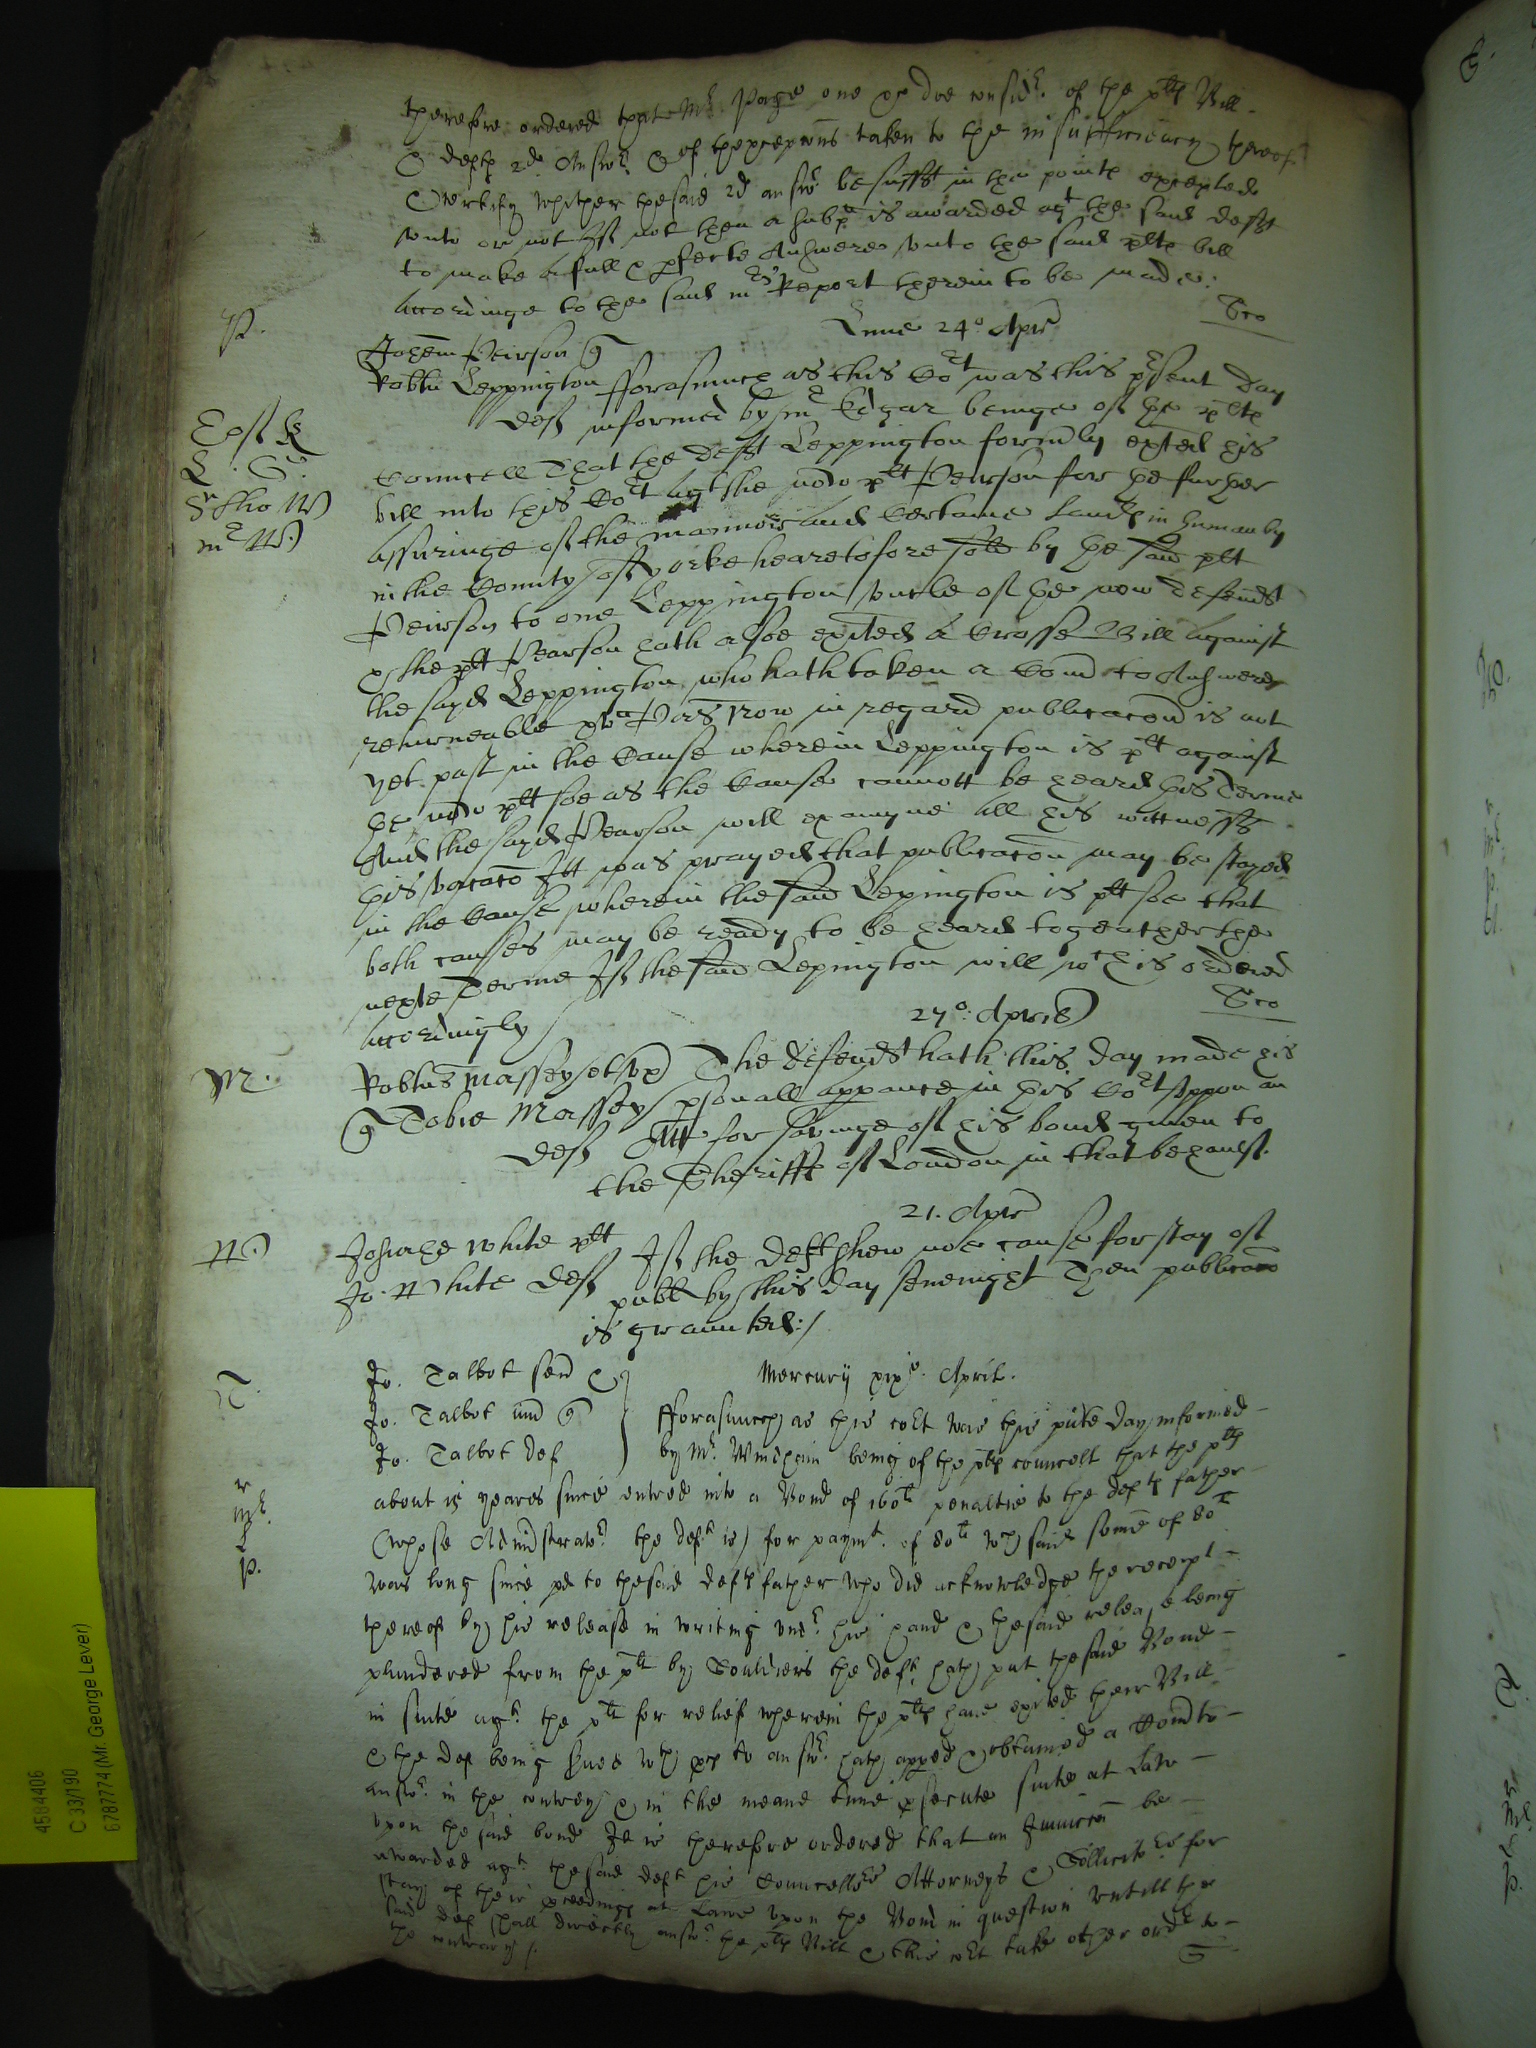 therefore ordered that Mr Page one &c doe consider of the plts Bill
& defts 2d Answr & of thexcepcons taken to the insufficiency thereof
& certify whither the said 2d answr be suffict in the points excepted
vnto or not If not then a subpa is awarded agt the said deft
to make a full & pfecte Answere vnto the said plts bill
Accordinge to the said mrs Report therein to be made:
Lune 24o Apr
P.
Peirson
Robtu Leppington fforasmuch as this Cort was this psent day
def informed by mr Edgar beinge of the plts
Councell That the deft Leppington formrly exhited his
bill into this Cort agt the now plt Peirson for the further
assuringe of the mannor and Certaine Lands in Hunmanby
in the County of yorke heretofore sold by the said plt
Peirson to one Leppington Vncle of the now defendt
& the plt Pearson hath alsoe exited a Crosse Bill against
the sayd Leppington who hath taken a Com to Answere
returneable Now in regard publicacon is not
yet past in the Cause wherein Leppington is plt against
the now plt soe as the Cause cannott be heard this Terme
And the sayd Pearson will examyne all his wittnesses
this vacacō Itt was prayed that publicacon may be stayed
in the Cause wherein the said Lepington is plt soe that
both causes may be ready to be heard togeather the
nexte Terme If the said Lepington will wch is ordered
Accordingly
27o: Aprilis
M.
Robtus Massey et ux The defendt hath this day made his
Tobie Massey psonall appance in this Cort vppon an
def Att for savinge of his bond given to
the Sheriffs of London in that behaulf.
21. Apr
W
Josuahe White plt If the deft shew noe cause for stay of
Jo. White def publ by this day sevenight Then publicacō
is graunted:/
T.
Jo. Talbot sen &
Mercurij xixo. April.
Jo. Talbot iun
fforasmuch as this cort was this pñte day informed
Jo. Talbot def
by Mr. Windham being of the plts councell that the plts
about 15 yeares since entred into a Bond of 160li penaltie to the defts father
(whose Administrator the deft is) for paymt. of 80li wch said some of 80li
was long since pd to the said defts father who did acknowledge the receipt
thereof by his release in writing undr his hand & the said release being
plundered from the plt by Souldiers the deft hath put the said Bond
in suite agt. the plt for relief wherein the plts have exited their Bill
& the def being served wth pcs to answr. hath apped & obtained a Comō to
answr. in the contrey & in the meane time psecute suite at Law
vpon the said bond It is therefore ordered that an Iniunccōn be
awarded agt. the said deft his Councellrs Attorneys & Sollicitors for
stay of their pceedings at Lawe vpon the Bond in question vntill the
said def shall directly answr. the plts Bill & this cort take other ordr to
the contrary /.
4584406
C 33/190
6787774 (Mr. George Lever)